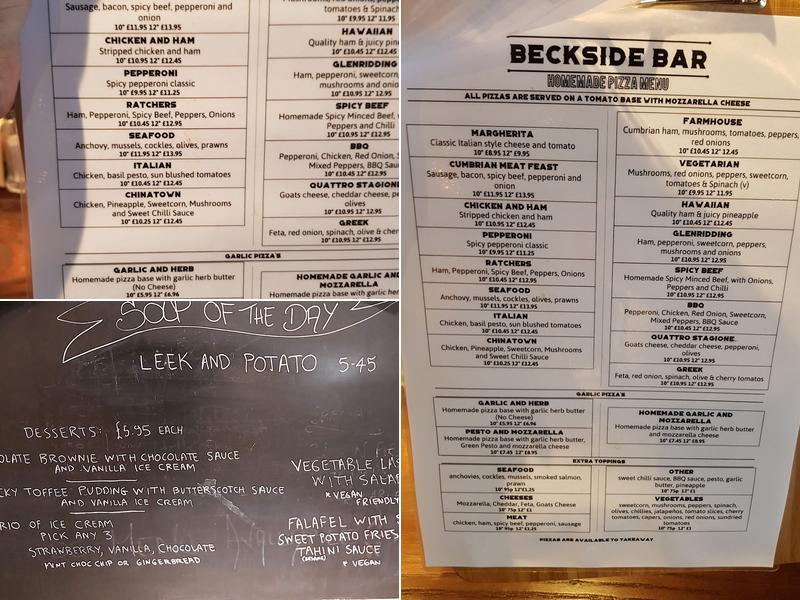 Sausage, bacon, spicy beef, pepperoni and
onion
10" £11.95 12" £13.95
CHICKEN AND HAM
Stripped chicken and ham
10" £10.95 12" £12.45
PEPPERONI
Spicy pepperoni classic
10" £9.95 12" £11.25
RATCHERS
Ham, Pepperoni, Spicy Beef, Peppers, Onions
10" £10.45 12" £12.95
SEAFOOD
Anchovy, mussels, cockles, olives, prawns
10" £11.95 12" £13.95
ITALIAN
Chicken, basil pesto, sun blushed tomatoes
10" £10.45 12" £12.45
CHINATOWN
Chicken, Pineapple, Sweetcorn, Mushrooms
and Sweet Chilli Sauce
10" £10.25 12" £12.45
tomatoes & Spinach
10" £9.95 12" 11.95
HAWAIIAN
Quality ham & juicy pine
10" £10.45 12" £12.45
GLENRIDDING
Ham, pepperoni, sweetcorn,
mushrooms and onio
10" £10.95 12" £12.95
SPICY BEEF
Homemade Spicy Minced Beef,
Peppers and Chilli
10" £10.95 12" £12.95
BBQ
Pepperoni, Chicken, Red Onion, S
Mixed Peppers, BBQ Sau
10" £10.45 12" £12.95
QUATTRO STAGIONE
Goats cheese, cheddar cheese, pe
olives
10" £10.95 12" £12.95
GREEK
Feta, red onion, spinach, olive & cher
10" £10.95 12" £12.95
GARLIC PIZZA'S
GARLIC AND HERB
Homemade pizza base with garlic herb butter
(No Cheese)
10" £5.95 12" £6.96
HOMEMADE GARLIC AND
MOZZARELLA
Homemade pizza base with garlic her
SOUP OF THE DAY
LEEK AND POTATO 5-45
DESSERTS: £5.95 EACH
OLATE BROWNIE WITH CHOCOLATE SAUCE
AND VANILLA ICE CREAM
CKY TOFFEE PUDDING WITH BUTTERSCOTCH SAUCE
AND VANILLA ICE CREAM
RIO OF ICE CREAM
PICK ANY 3
STRAWBERRY, VANILLA, CHOCOLATE
MINT CHOC CHIP OR GINGERBREAD
VEGETABLE LA
WITH SALA
* VEGAN
FRIENDLY
FALAFEL WITH S
SWEET POTATO FRIES
TAHINI SAUCE
(SESAME)
* VEGAN
BECKSIDE BAR
HOMEMADE PIZZA MENU
ALL PIZZAS ARE SERVED ON A TOMATO BASE WITH MOZZARELLA CHEESE
MARGHERITA
Classic Italian style cheese and tomato
10" £8.95 12" £9.95
CUMBRIAN MEAT FEAST
Sausage, bacon, spicy beef, pepperoni and
onion
10" £11.95 £13.95
CHICKEN AND HAM
Stripped chicken and ham
10" £10.95 12" £12.45
PEPPERONI
Spicy pepperoni classic
10" £9.95 12" £11.25
RATCHERS
Ham, Pepperoni, Spicy Beef, Peppers, Onions
10" £10.45 12" £12.95
SEAFOOD
Anchovy, mussels, cockles, olives, prawns
10" £11.95 £13.95
ITALIAN
Chicken, basil pesto, sun blushed tomatoes
10" £10.45 12" £12.45
CHINATOWN
Chicken, Pineapple, Sweetcorn, Mushrooms
and Sweet Chilli Sauce
10" £10.25 12" £12.45
FARMHOUSE
Cumbrian ham, mushrooms, tomatoes, peppers,
red onions
10" £10.45 12" 12.45
VEGETARIAN
Mushrooms, red onions, peppers, sweetcorn,
tomatoes & Spinach (v)
10" £9.95 12" 11.95
HAWAIIAN
Quality ham & juicy pineapple
10" £10.45 12" £12.45
GLENRIDDING
Ham, pepperoni, sweetcorn, peppers,
mushrooms and onions
10" £10.95 12" £12.95
SPICY BEEF
Homemade Spicy Minced Beef, with Onions,
Peppers and Chilli
10" £10.95 12" £12.95
BBQ
Pepperoni, Chicken, Red Onion, Sweetcorn,
Mixed Peppers, BBQ Sauce
10" £10.45 12" £12.95
QUATTRO STAGIONE
Goats cheese, cheddar cheese, pepperoni,
olives
10" £10.95 12" £12.95
GREEK
Feta, red onion, spinach, olive & cherry tomatoes
10" £10.95 12" £12.95
GARLIC PIZZA'S
GARLIC AND HERB
Homemade pizza base with garlic herb butter
(No Cheese)
10" £5.95 12" £6.96
PESTO AND MOZZARELLA
Homemade pizza base with garlic herb butter,
Green Pesto and mozzarella cheese
10" £7.45 12" £8.95
HOMEMADE GARLIC AND
MOZZARELLA
Homemade pizza base with garlic herb butter
and mozzarella cheese
10" £7.45 12" £8.95
EXTRA TOPPINGS
SEAFOOD
anchovies, cockles, mussels, smoked salmon,
prawn
10" 95p 12"£1.25
CHEESES
Mozzarella, Cheddar, Feta, Goats Cheese
10" 75p 12" £1
MEAT
chicken, ham, spicy beef, pepperoni, sausage
10" 95p 12"£1.25
OTHER
sweet chilli sauce, BBQ sauce, pesto, garlic
butter, pineapple
10" 75p 12"£1
VEGETABLES
sweetcorn, mushrooms, peppers, spinach,
olives, chillies, jalapeños, tomato slices, cherry
tomatoes, capers, onions, red onions, sundried
tomatoes
10" 75p 12" £1
PIZZAS ARE AVAILABLE TO TAKEAWAY